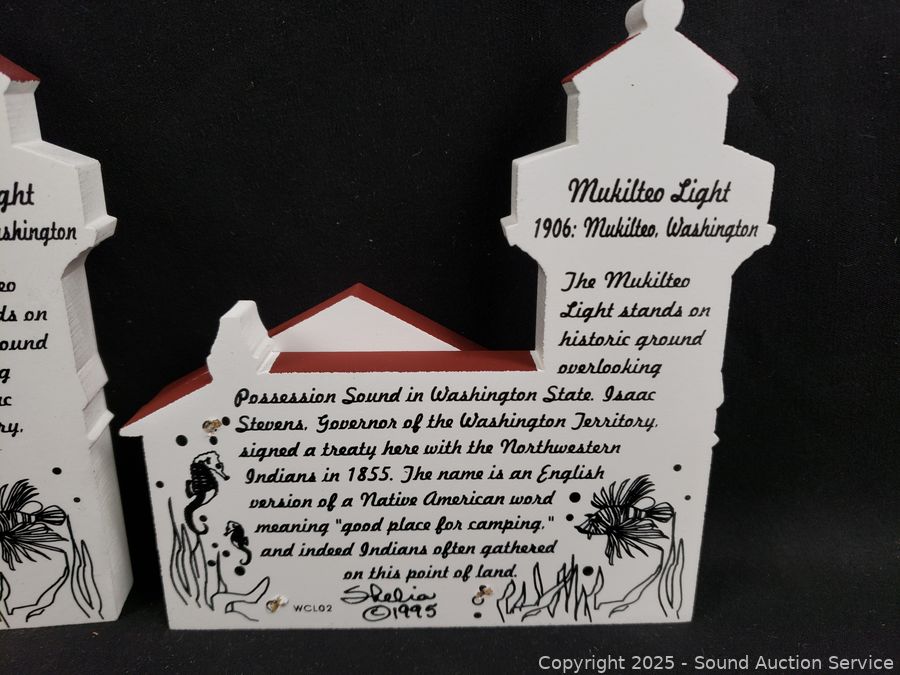 ght
shington
eo
ds on
ound
g
ac
ry,
Mukilteo Light
1906: Mukilteo, Washington
The Mukilteo
Light stands on
historic ground
overlooking
Possession Sound in Washington State. Isaac
Stevens, Governor of the Washington Territory,
signed a treaty here with the Northwestern
Indians in 1855. The name is an English
version of a Native American word
meaning "good place for camping,"
and indeed Indians often gathered
on this point of land.
Shelia
©1995
WCL02
Copyright 2025 - Sound Auction Service